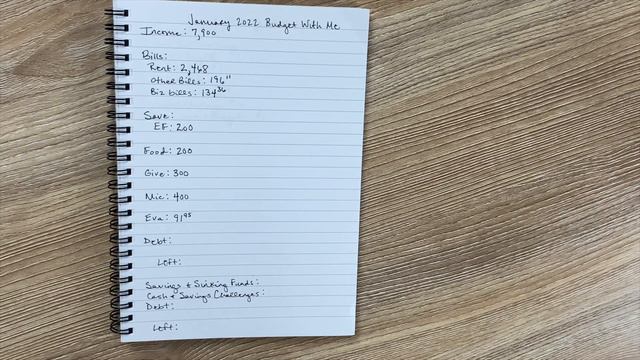 January 2022 Budget With Me
Income: 7,900
Bills:
Rent: 2,468
Other Bills: 196¹¹
Biz bills: 134³⁶
Save:
EF: 200
Food: 200
Give: 300
Mic: 400
Eva: 91⁹⁵
Debt:
Left:
Savings & Sinking Funds:
Cash & Savings Challenges:
Debt:
Left: